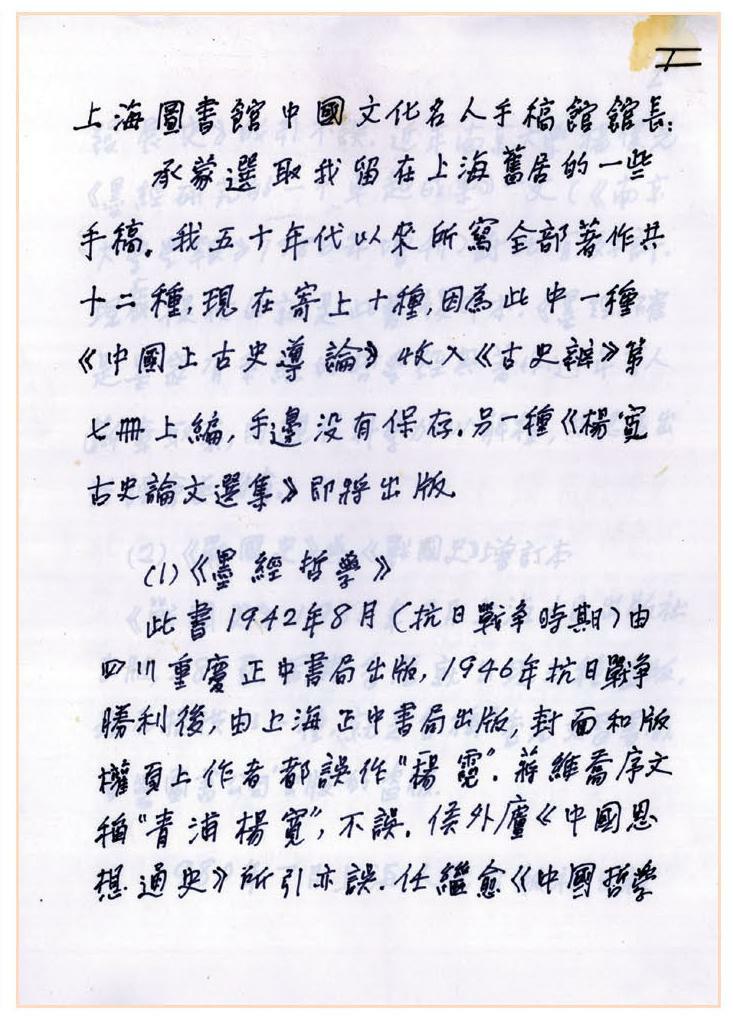 上海圖書館中國文化名人手稿館館長：
承蒙選取我留在上海舊居的一些
手稿。我五十年代以來所寫全部著作共
十二種，現在寄上十種，因為此中一種
《中國上古史導論》收入《古史辨》第
七冊上編，手邊没有保存。另一種《楊寬
古史論文選集》即將出版。
(1)《墨經哲學》
此書1942年8月（抗日戰争時期）由
四川重慶正中書局出版，1946年抗日戰争
勝利後，由上海正中書局出版，封面和版
權頁上作者都誤作“楊霓”。蔣維喬序文
稱“青浦楊寬”，不誤。侯外廬《中國思
想通史》所引亦誤。任繼愈《中國哲學